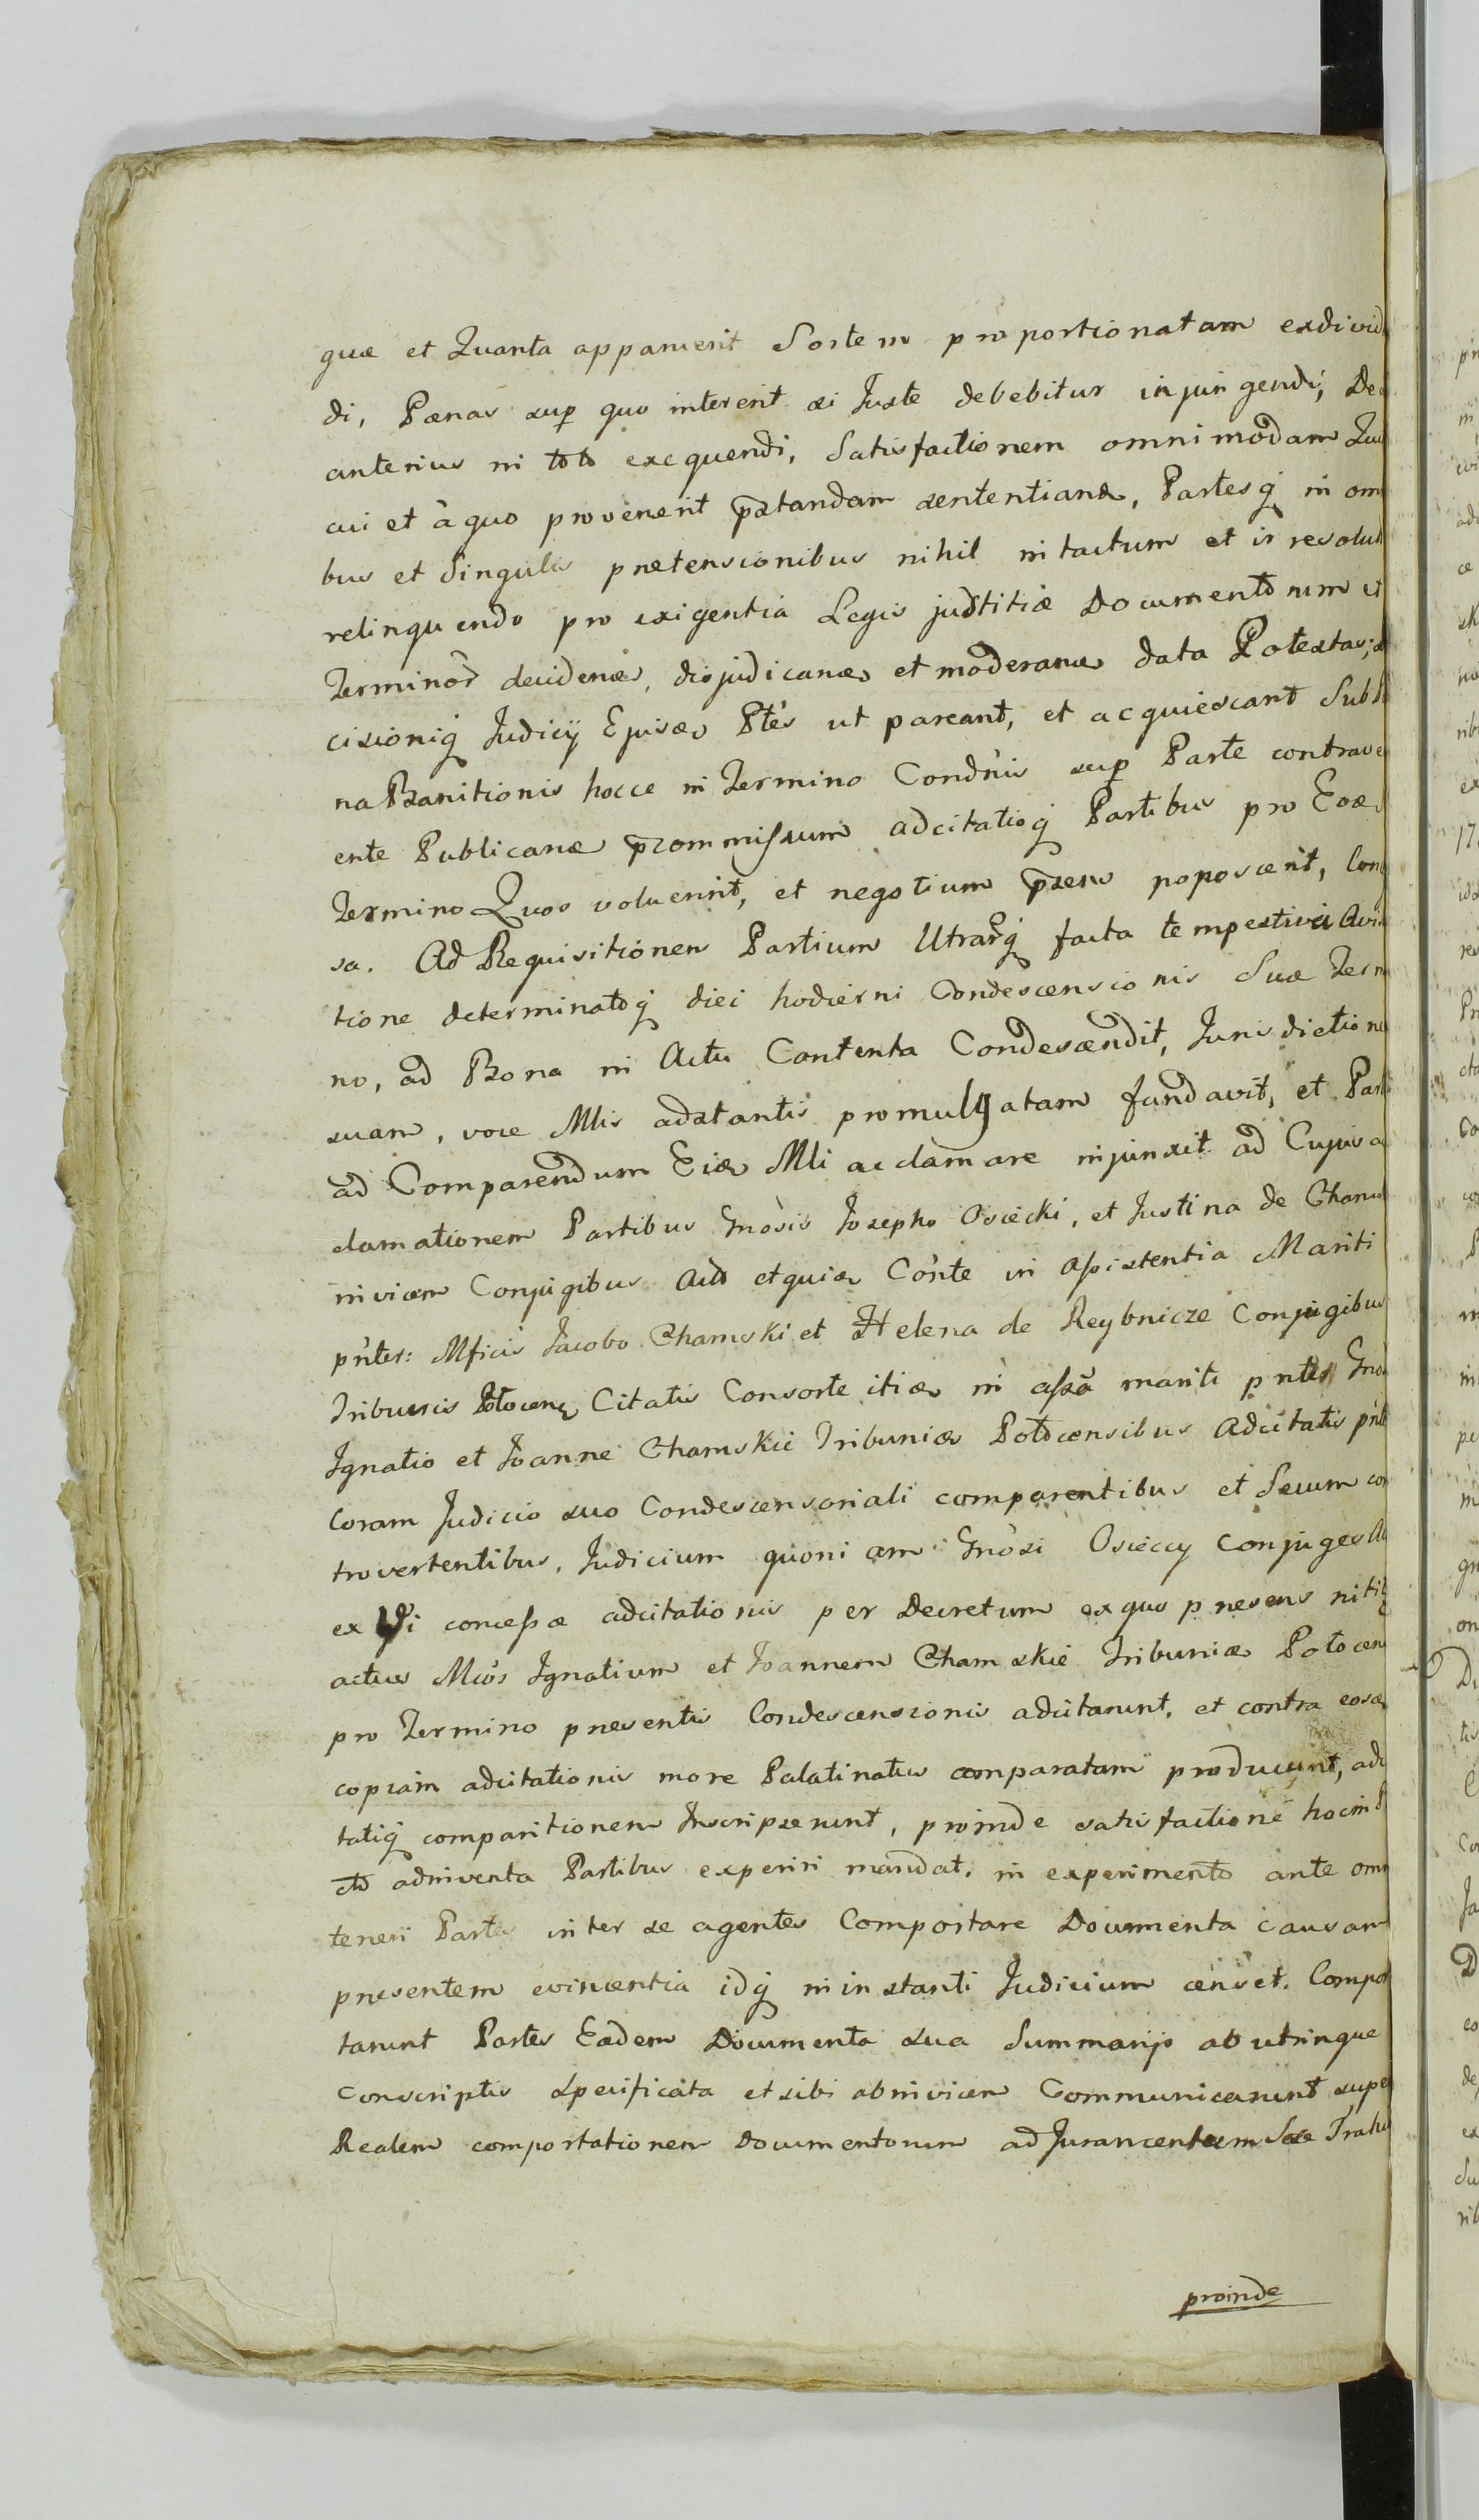 quæ et Quanta apparuerit Sortem proportionatam exdivid
di, Pænas sup quo intererit si Juste debebitur injungendi, De
anterius in toto exequendi, Satisfactionem omnimodam
cui et à quo provenerit pstandam sententianđ, Partesq̃ in om
bus et Singulis prætensionibus nihil intactum et irresolut
relinquendo pro exigentia Legis justitiæ Documentorum et
Terminor decidenđ, disjudicanđ et moderanđ data Potestas,
cisioniq̃ Judicÿ Ejusđ Ptes ut pareant, et acquiescant Sub
na Banitionis hocce in Termino Condnis sup Parte contrave
ente Publicanđ prommissum adcitatisq̃ Partibus pro Eođ
Termino Quos voluerint, et negotium pzens poposcerit,
sa. Ad Requisitionem Partium Utrarq̃ facta tempestiva
tione determinatoq̃ diei hodierni Condescensionis Suæ Term
no, ad Bona in Actu Contenta Condescendit, Jurisdictione
suam, voce Mlis adstantis promulgatam fundavit, et Part
ad Comparendum Eiđ Mli acclamare injunxit ad Cujus a
clamationem Partibus Gnosis Josepho Osiecki, et Justina de
invicem Conjugibus etquiđ Cönte in Assistentia Mariti
pnter: Mficis Jacobo Chamski et Helena de Reybnicze Conjugibus
Tribunis Plocen Citatis Consorte itiđ in assa mariti pnter Gno
Ignatio et Joanne Chamskie Tribuniđ Plotocensibus Adcitatis pnt
Coram Judicio suo Condescensoriali comparentibus et Secum con
trovertentibus, Judicium quoniam Gnosi Osieccy Conjuges
ex Vi concessæ adcitationis per Decretum ex quo præsens
actus Mcos Ignatium et Joannem Chamskie Tribuniđ Potocen
pro Termino præsentis Condescensionis adcitarunt, et contra eosđ
copiam adcitationis more Palatinatus comparatam producunt, adci
tatiq̃ comparitionem Inscripserunt, proinde satisfactione hocin
cto adinventa Partibus experiri mandat, in experimento ante omn
teneri Partes inter se agentes Comportare Documenta causam
præsentem evincentia idq̃ in instanti Judicium censet. Compor
tarunt Partes Eædem Documenta sua Summarijs ab utrinque
Conscriptis specificata et sibi ab invicem Communicarunt super
Realem comportationem Documentorum ad Juramentum Se
proinde